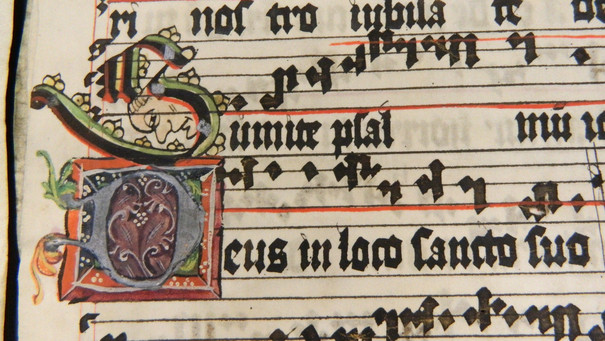 ri nos tro iubila te de
Sumite psal mū
Deus in loco sancto suo